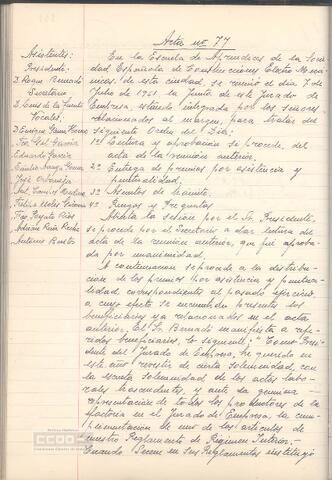 Acta nº 77
Asistentes:
Presidente
D. Roque Bernado
Secretario
D. Luis de la Fuente
Vocales:
Eduardo García
José
Antonio
En la Escuela de Aprendices de la Socie-
dad Española de Construcciones Electro Mecá-
nicas de esta ciudad, se reunió el dia 7 de
Julio de 1961 la Junta de este Jurado de
Empresa, estando integrada por los señores
relacionados al margen, para tratar del
siguiente Orden del Dia:
1º Lectura y aprobación si procede, del
acta de la reunión anterior.
2º Entrega de premios por asistencia y
puntualidad.
3º Asuntos de trámite.
4º Ruegos y Preguntas
Abierta la sesión por el Sr. Presidente,
se procede por el Secretario a dar lectura del
acta de la reunión anterior, que fué aproba-
da por unanimidad.
A continuación se procede a la distribu-
ción de los premios por asistencia y puntuali-
dad, correspondientes al pasado ejercicio,
a cuyo efecto se encuentran presentes los
beneficiarios y a relacionados en el acta
anterior. El Sr. Bernado manifiesta a refe-
ridos beneficiarios, lo siguiente: "Como Presi-
dente del Jurado de Empresa, he querido en
este año revestir de cierta solemnidad, con
la escueta solemnidad de los actos labo-
rales trascendentes y ante la genuina
representación de todos los productores de la
factoria en el Jurado de Empresa, la cum-
plimentación de uno de los articulos de
nuestro Reglamento de Régimen Interior.-
Cuando Secem en sus Reglamentos instituyó
CCOO